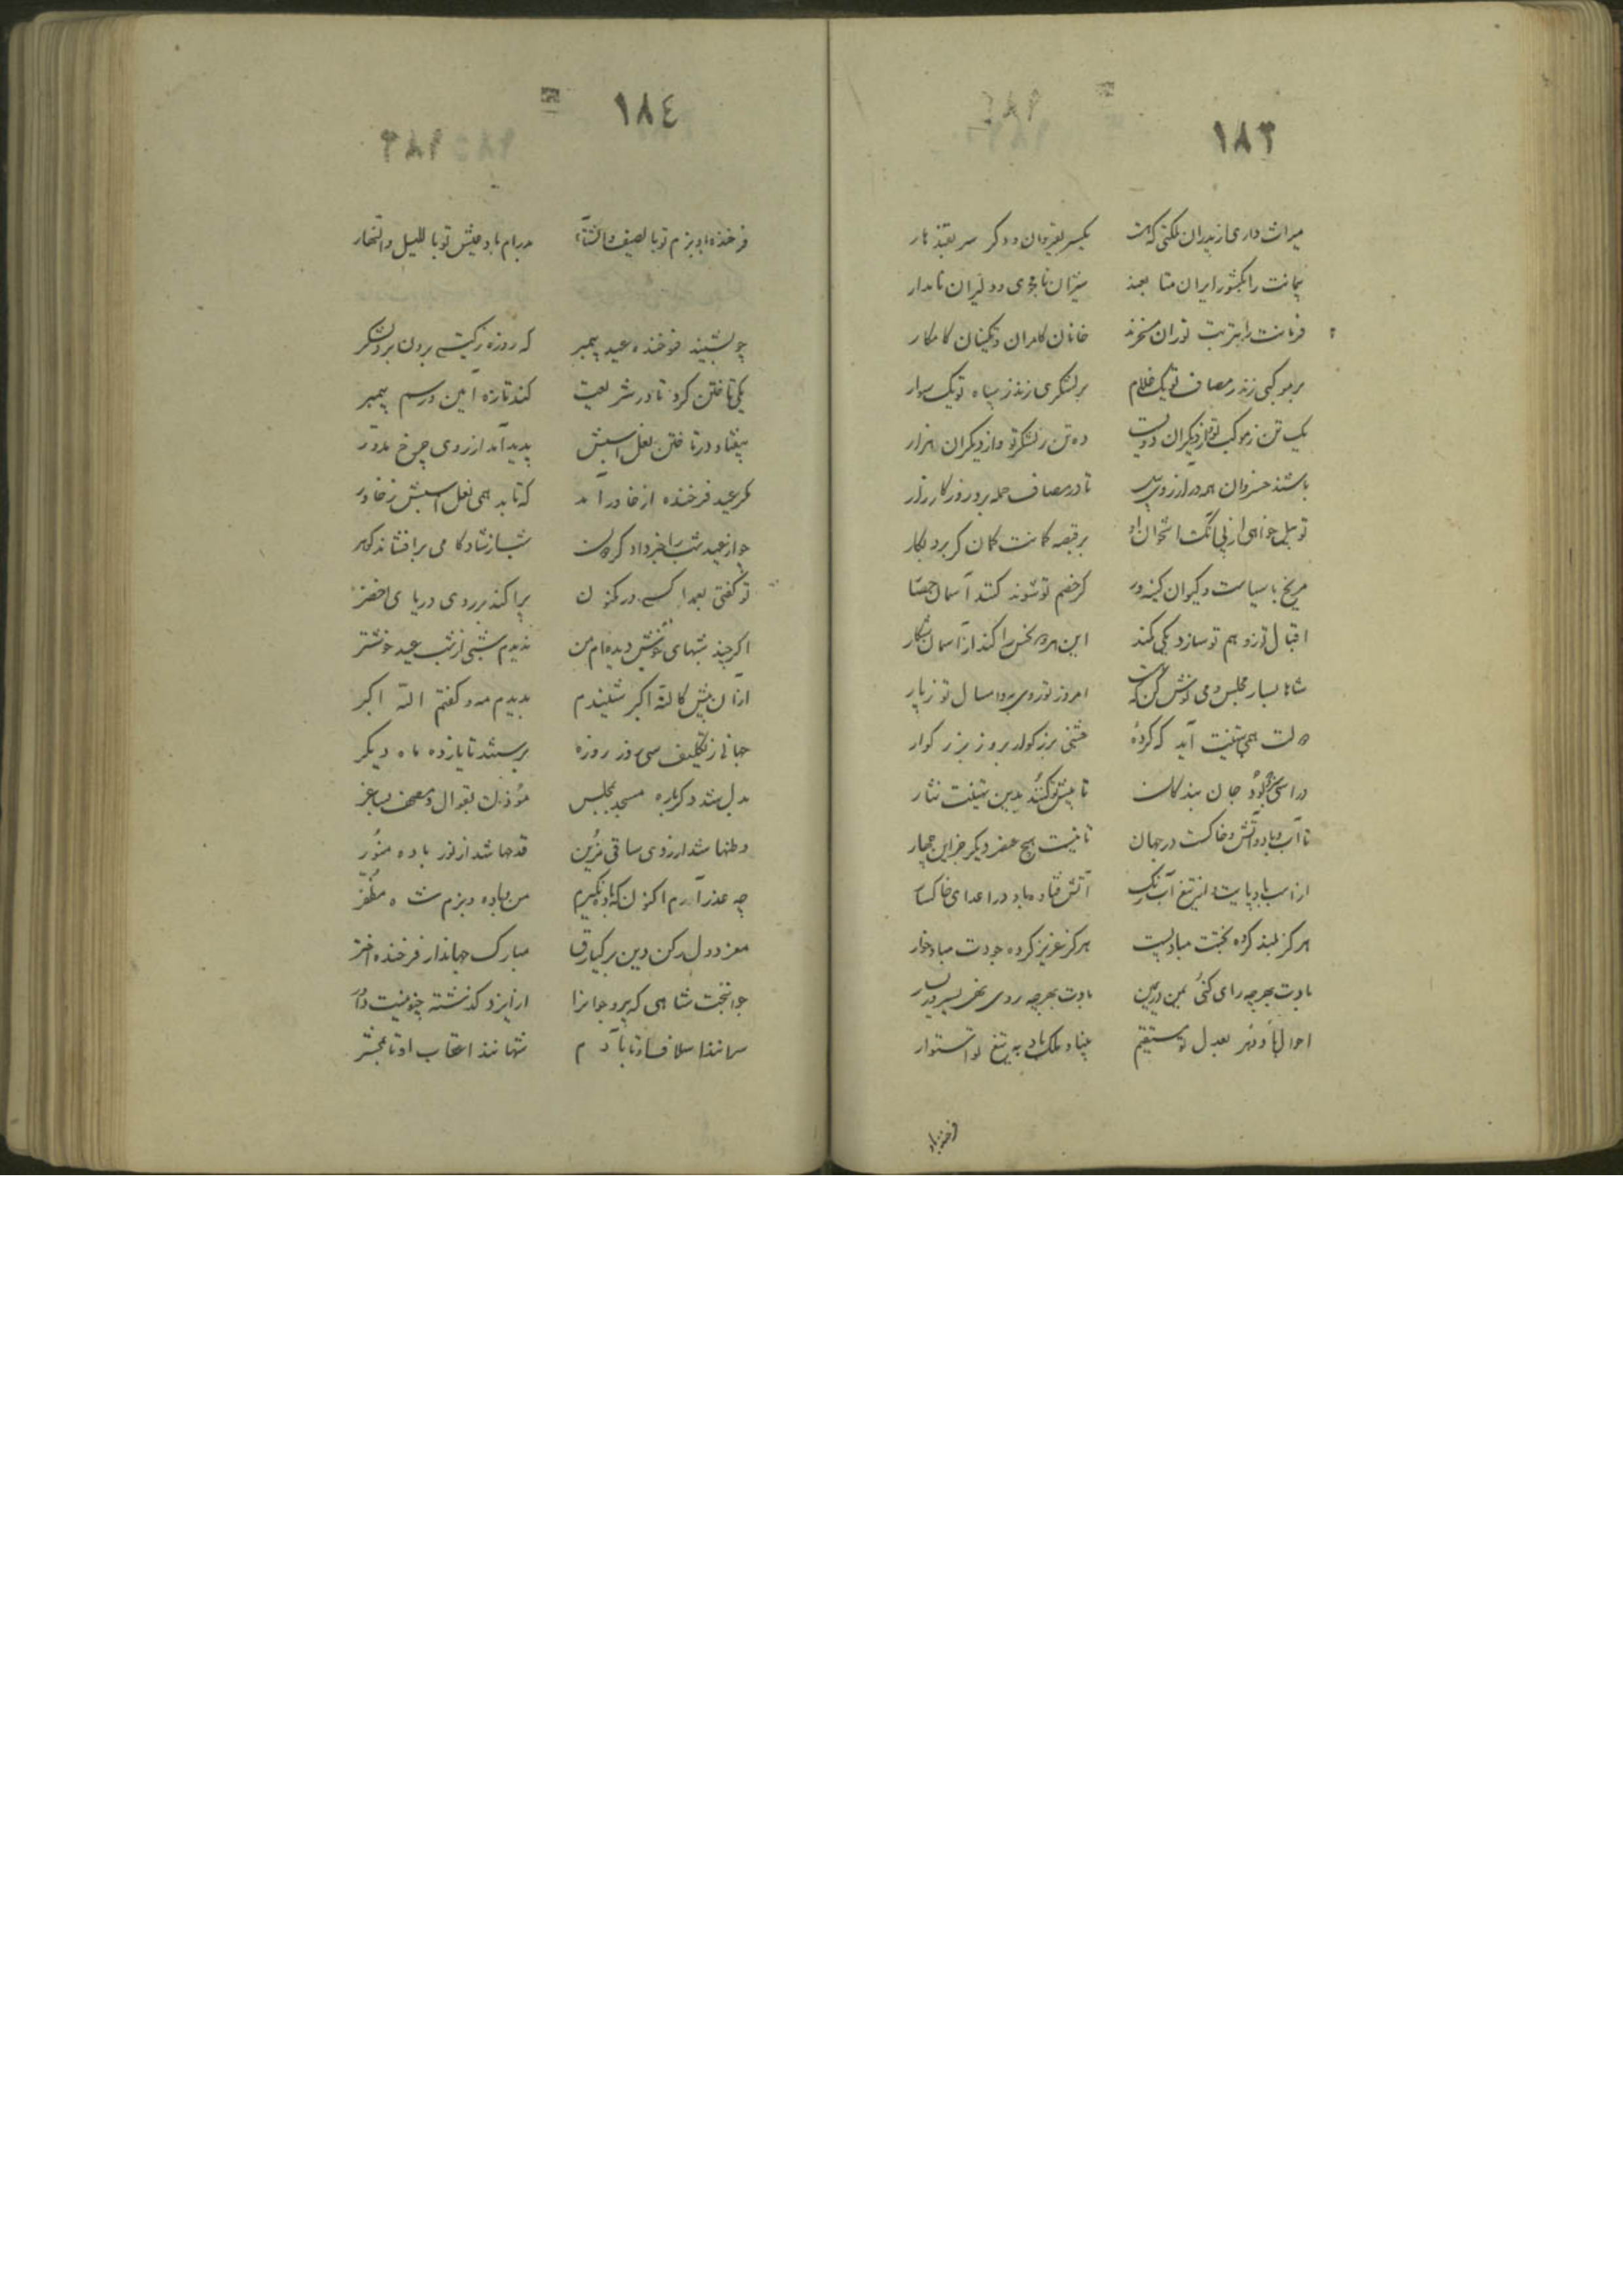 ١٨٣
میراث داری از پدران ملکتی که هست یکسر بقیروان و دگر سر بقندهار
پیمانت را بکشور ایران متابعند میران نامجوی و دلیران نامدار
فرمانت را بتربت توران مسخرند خانان کامران و تکینان کامکار
بر موکبی زند ز مصاف تو یک غلام بر لشکری زند ز سپاه تو یک سوار
یک تن ز موکب تو و از دیگران دویست ده تن ز لشکر تو و از دیگران هزار
باشند خسروان همه در آرزوی
تا در مصاف حمله برد روز کارزار
بر قبضه کمانت کمان گر برد بکار
مریخ با سیاست و کیوان کینه ور گر خصم تو شوند کشند آسمان
اقبال تو زوهم تو سازد یکی کمند این هر دو نحس را کند از آسمان شکار
شاها بساز مجلس و می نوش کن که هست امروز تو ز دی به و امسال تو ز پار
وقت همی بتهنیت آید که کرده جشنی بزرگوار بروز بزرگوار
در آستین جان بندگان تا پیش تو کنند بدین تهنیت نثار
تا آب و باد و آتش و خاکست در جهان تا نیست هیچ عنصر دیگر جز این چهار
از اسب باد پایت و از تیغ آب رنگ آتش فتاده باد در اعدای خاکسار
هر کز بلند کرده بختت مباد پست هر کز عزیز کرده جودت مباد خوار
بادت بهر چه رای کنی یمن در یمین بادت بهر چه روی نهی یسر در یسار
احوال باد و دهر بعدل تو مستقیم بنیاد ملک باد به تیغ تو استوار
فرخنده باد
١٨٤
فرخنده باد بزم تو بالصیف والشتاء مدرام باد عیش تو باللیل والنهار
چو بشنید فرخنده عید پیمبر که روزه ز گیتی برون برد لشکر
یکی تاختن کرد تا در شریعت کند تازه آیین و رسم پیمبر
بیفتاد در تاختن نعل اسبش پدید آمد از روی چرخ مدور
مگر عید فرخنده از خاور آمد که تابد همی نعل اسبش ز خاور
چو از عید شب را خبر داد گردون شب از شادکامی برافشاند گوهر
تو گفتی بعمدا کسی در مکنون پراکند بر روی دریای اخضر
اگر چند شبهای خوش دیده ام من ندیدم شبی از شب عید خوشتر
از آن پیش کالله اکبر شنیدم بدیدم مه و گفتم الله اکبر
جهانی ز تکلیف سی روز روزه برستند تا یازده ماه دیگر
بدل شد دگرباره مسجد بمجلس مؤذن بقوال و مصحف بساغر
وطنها شد از روی ساقی مزین قدحها شد از نور باده منور
چه عذر آرم اکنون که باده نگیرم من و باده و بزم شاه مظفر
معز دول رکن دین برکیارق مبارک جهاندار فرخنده اختر
جوانبخت شاهی که پیر و جوانرا از ایزد گذشته چنو نیست داور
سرانند اسلاف او تا بآدم شهانند اعقاب او تا بمحشر